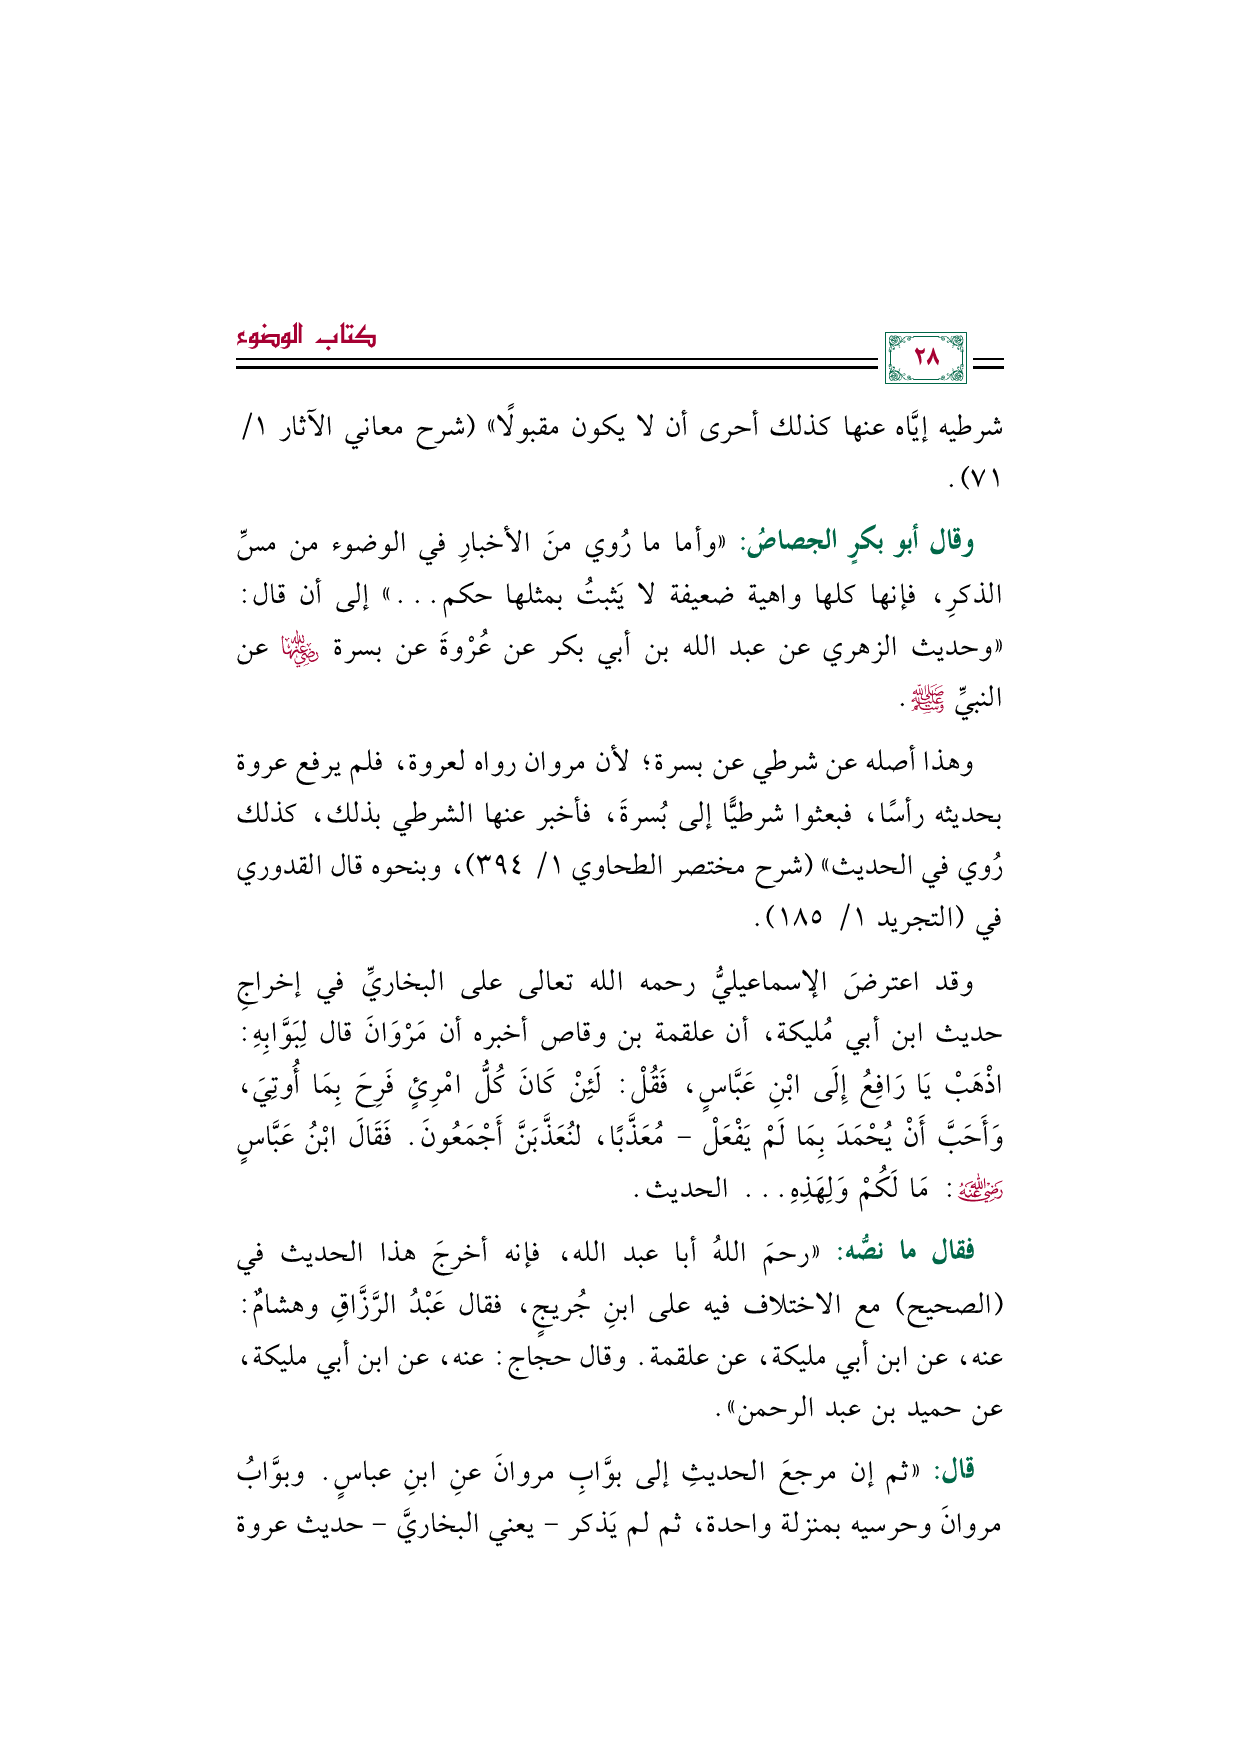 كتاب الوضوء
٢٨
شرطيه إيَّاه عنها كذلك أحرى أن لا يكون مقبولًا» (شرح معاني الآثار ١/
٧١).
وقال أبو بكرٍ الجصاصُ: «وأما ما رُوي منَ الأخبارِ في الوضوء من مسِّ
الذكرِ، فإنها كلها واهية ضعيفة لا يَثبتُ بمثلها حكم...» إلى أن قال:
«وحديث الزهري عن عبد الله بن أبي بكر عن عُرْوةَ عن بسرة رضي الله عنها عن
النبيِّ ﷺ.
وهذا أصله عن شرطي عن بسرة؛ لأن مروان رواه لعروة، فلم يرفع عروة
بحديثه رأسًا، فبعثوا شرطيًّا إلى بُسرةَ، فأخبر عنها الشرطي بذلك، كذلك
رُوي في الحديث» (شرح مختصر الطحاوي ١/ ٣٩٤)، وبنحوه قال القدوري
في (التجريد ١/ ١٨٥).
وقد اعترضَ الإسماعيليُّ رحمه الله تعالى على البخاريِّ في إخراجِ
حديث ابن أبي مُليكة، أن علقمة بن وقاص أخبره أن مَرْوَانَ قال لِبَوَّابِهِ:
اذْهَبْ يَا رَافِعُ إِلَى ابْنِ عَبَّاسٍ، فَقُلْ: لَئِنْ كَانَ كُلُّ امْرِئٍ فَرِحَ بِمَا أُوتِيَ،
وَأَحَبَّ أَنْ يُحْمَدَ بِمَا لَمْ يَفْعَلْ – مُعَذَّبًا، لنُعَذَّبَنَّ أَجْمَعُونَ. فَقَالَ ابْنُ عَبَّاسٍ
رضي الله عنه: مَا لَكُمْ وَلِهَذِهِ... الحديث.
فقال ما نصُّه: «رحمَ اللهُ أبا عبد الله، فإنه أخرجَ هذا الحديث في
(الصحيح) مع الاختلاف فيه على ابنِ جُريجٍ، فقال عَبْدُ الرَّزَّاقِ وهشامٌ:
عنه، عن ابن أبي مليكة، عن علقمة. وقال حجاج: عنه، عن ابن أبي مليكة،
عن حميد بن عبد الرحمن».
قال: «ثم إن مرجعَ الحديثِ إلى بوَّابِ مروانَ عنِ ابنِ عباسٍ. وبوَّابُ
مروانَ وحرسيه بمنزلة واحدة، ثم لم يَذكر – يعني البخاريَّ – حديث عروة